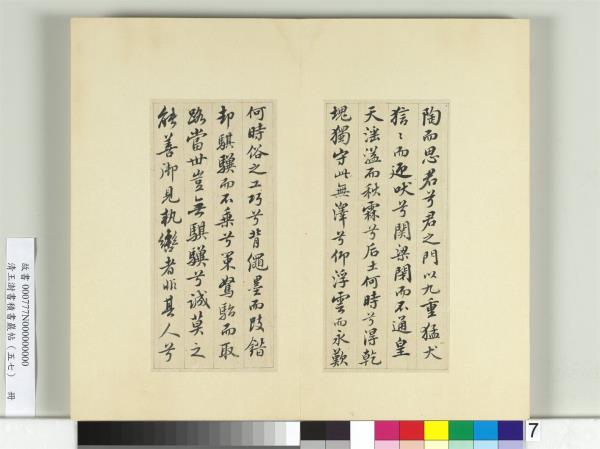 陶而思君兮君之門以九重猛犬
狺〻而迎吠兮関梁閉而不通皇
天滛溢而秋霖兮后土何時兮淂乾
塊獨守此無澤兮仰浮雲而永歎
何時俗之工巧兮背繩墨而改錯
却騏驥而不乗兮策駑駘而取
路當世豈無騏驥兮誠莫之
能善御見執轡者非其人兮
故書 000777N000000000
清王澍書積書巖帖（五七） 冊
7